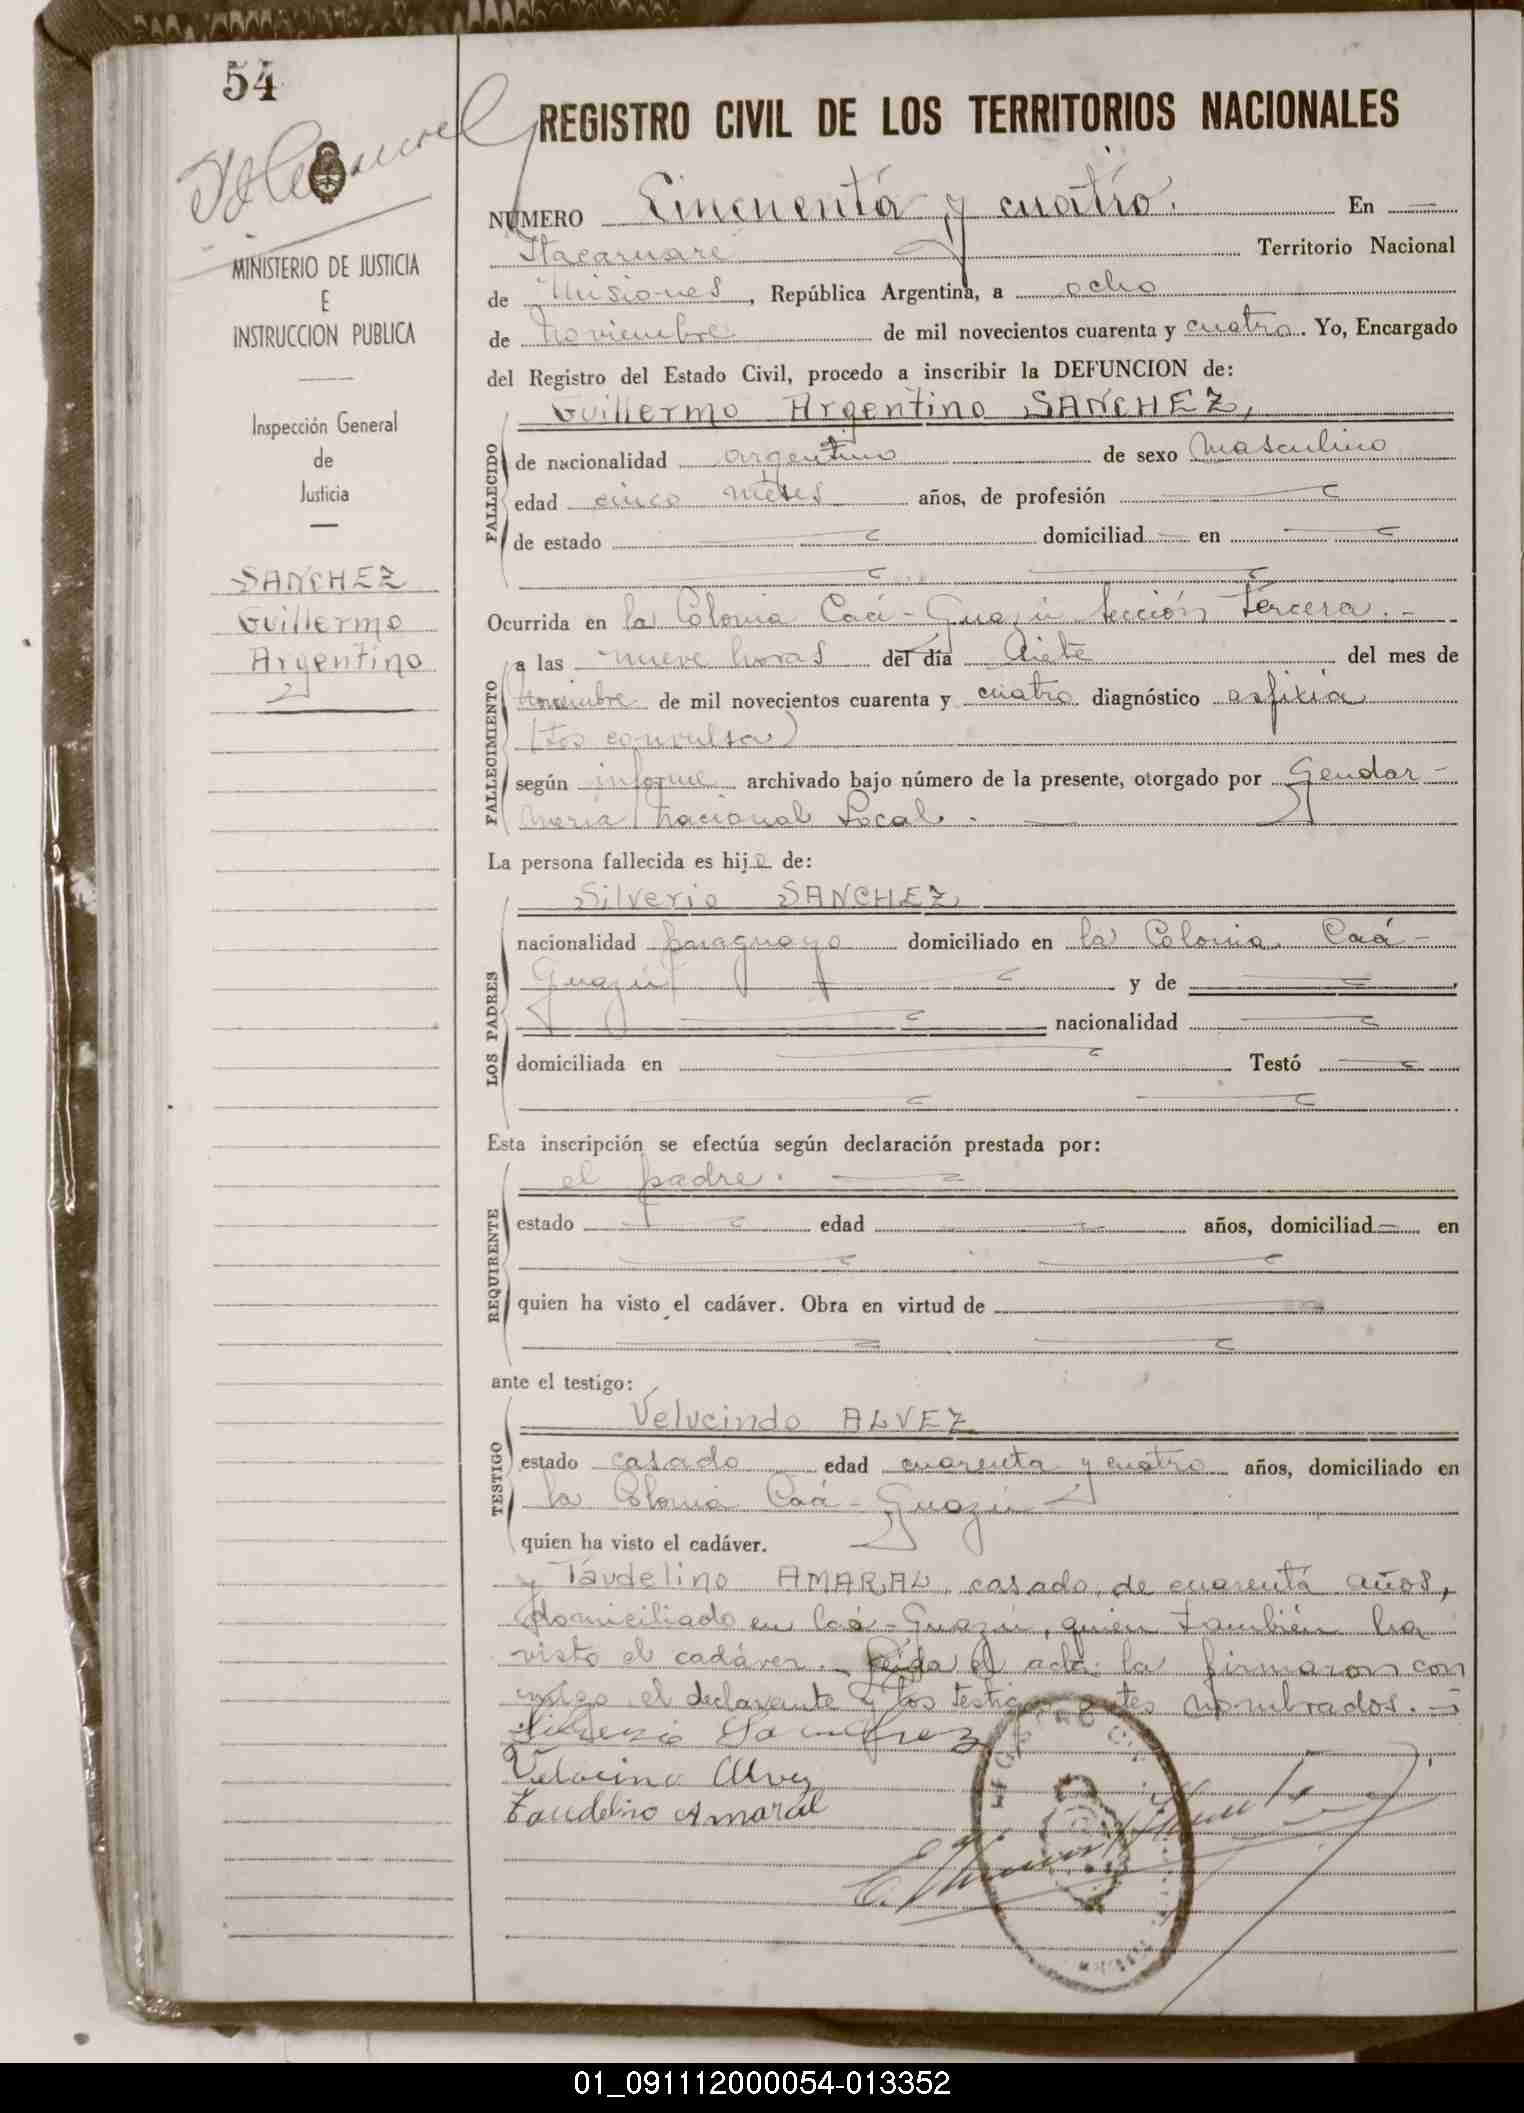 54
REGISTRO CIVIL DE LOS TERRITORIOS NACIONALES
NUMERO Cincuenta y cuatro. En
Itacaruaré Territorio Nacional
de Misiones, República Argentina, a ocho
de noviembre de mil novecientos cuarenta y cuatro. Yo, Encargado
del Registro del Estado Civil, procedo a inscribir la DEFUNCION de:
MINISTERIO DE JUSTICIA
E
INSTRUCCION PUBLICA
Inspección General
de
Justicia
SANCHEZ
Guillermo
Argentino
FALLECIDO
Guillermo Argentino SANCHEZ,
de nacionalidad argentino de sexo masculino
edad cinco meses años, de profesión
de estado domiciliad en
Ocurrida en la Colonia Caá-Guazú sección tercera.-
FALLECIMIENTO
a las nueve horas del día siete del mes de
noviembre de mil novecientos cuarenta y cuatro diagnóstico asfixia
(tos convulsa)
según informe archivado bajo número de la presente, otorgado por Gendar-
meria nacional Local.
La persona fallecida es hijo de:
LOS PADRES
Silverio SANCHEZ,
nacionalidad paraguayo domiciliado en la Colonia Caá-
Guazú y de
nacionalidad
domiciliada en Testó
Esta inscripción se efectúa según declaración prestada por:
REQUIRENTE
el padre.
estado edad años, domiciliad en
quien ha visto el cadáver. Obra en virtud de
ante el testigo:
TESTIGO
Velucindo ALVEZ
estado casado edad cuarenta y cuatro años, domiciliado en
la Colonia Caá-Guazú
quien ha visto el cadáver.
y Taudelino AMARAL, casado, de cuarenta años,
domiciliado en Caá-Guazú, quien también ha
visto el cadáver.- Leida el acta la firmaron con
migo el declarante y los testigos antes nombrados.-
Silverio Sanchez
Velocino Alvez
Taudelino Amaral
01_091112000054-013352